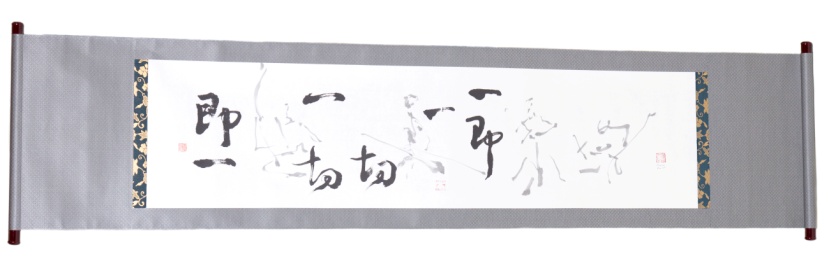 一即
一切
一切
即一